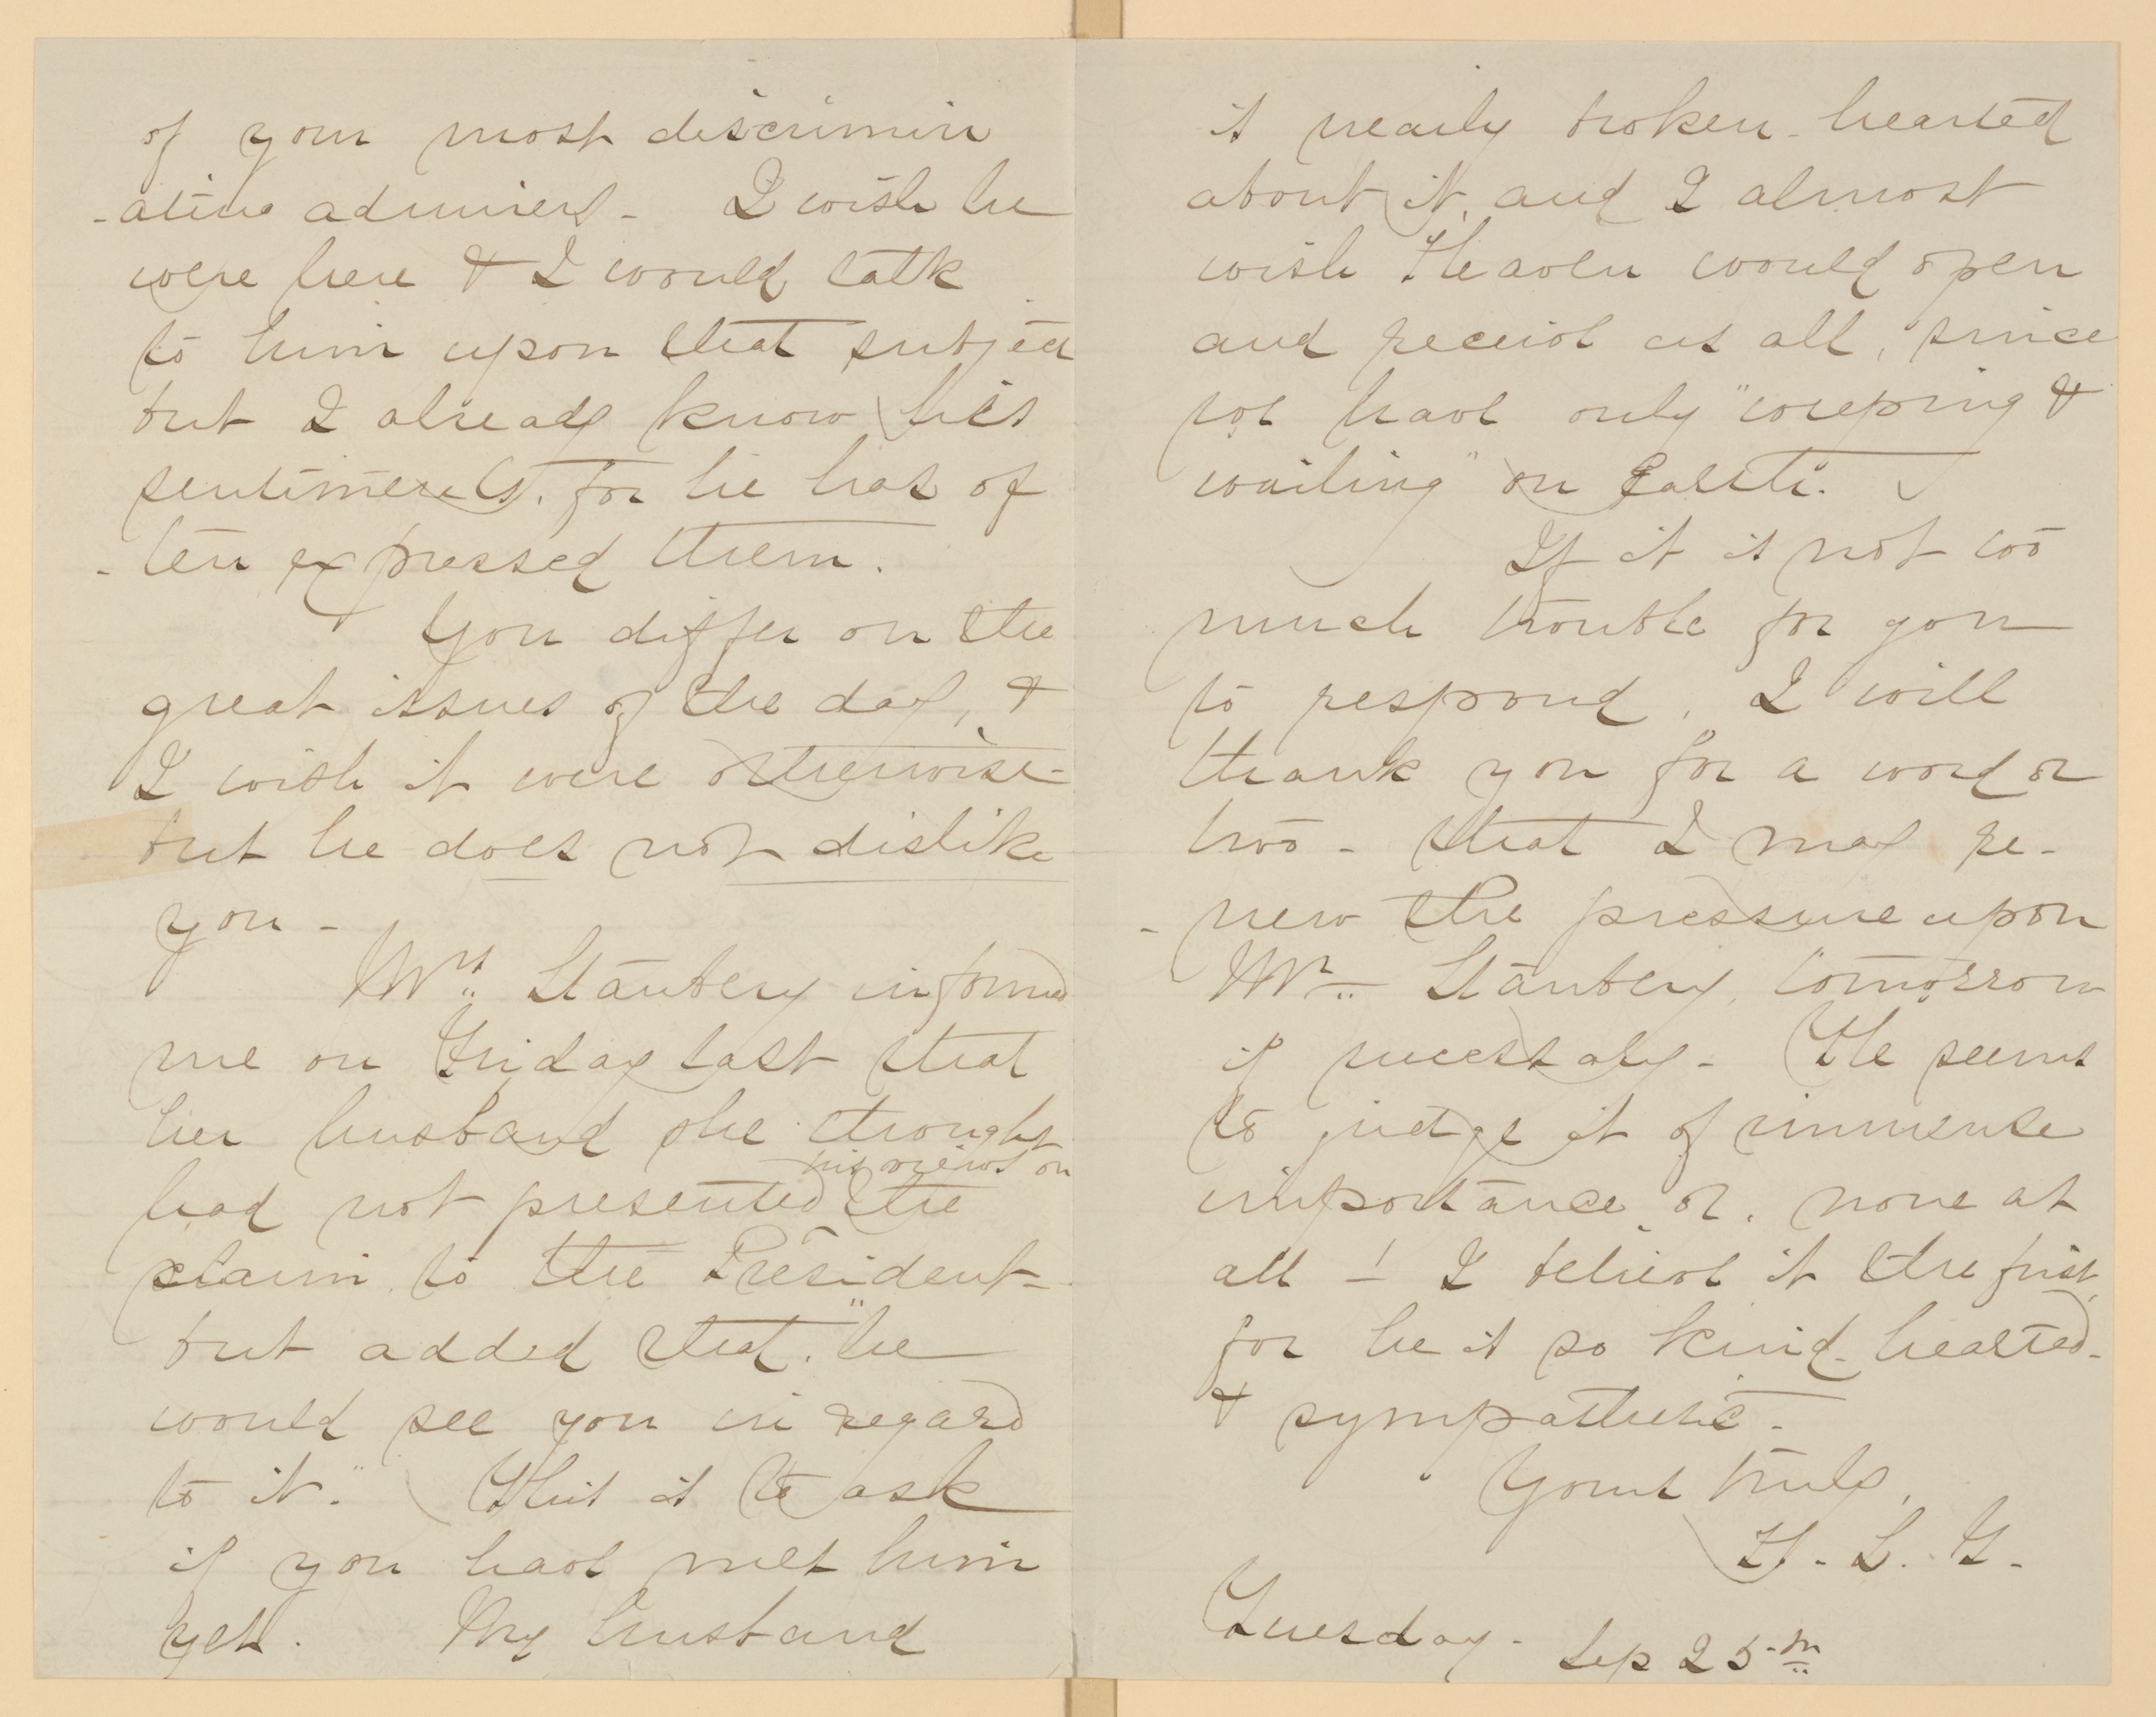 of your most discrimin
-ating admirers - I wish he
were here & I would talk
to him upon that subject
but I already know his
sentiments, for he has of
-ten expressed them.
You differ on the
great issues of the day, &
I wish it were otherwise -
but he does not dislike
you -
Mrs. Stanbery informed
me on Friday last that
her husband she thought
his views on
had not presented the
claim to the President -
but added that, "he
would see you in regard
to it." This is to ask
if you have met him
yet. My husband
is nearly broken-hearted
about it, and I almost
wish Heaven would open
and receive us all, since
we have only "weeping &
wailing" on Earth.
If it is not too
much trouble for you
to respond, I will
thank you for a word or
two - that I may re-
-new the pressure upon
Mr. Stanbery, tomorrow
if necessary - He seems
to judge it of immense
importance, or, none at
all - ! I believe it the first,
for he is so kind-hearted -
& sympathetic -
Yours truly,
Tuesday - Sep 25th